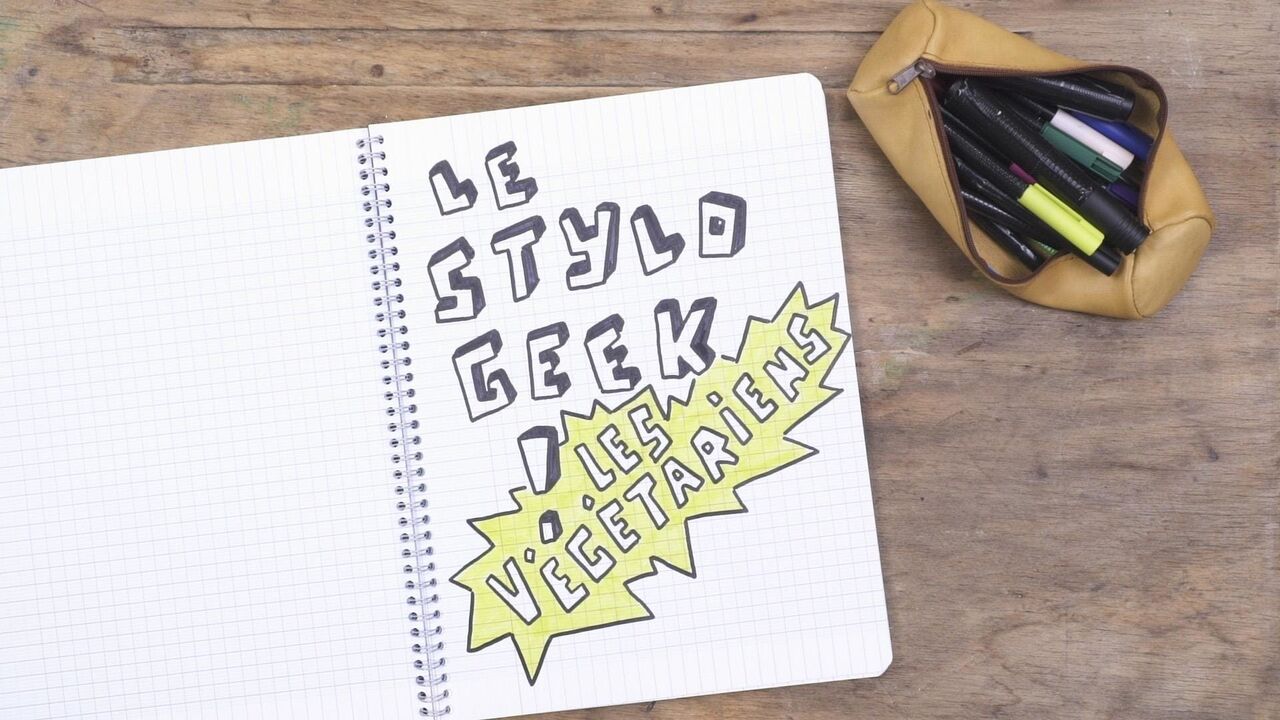 LE
STYLO
GEEK
!
LES
VÉGÉTARIENS